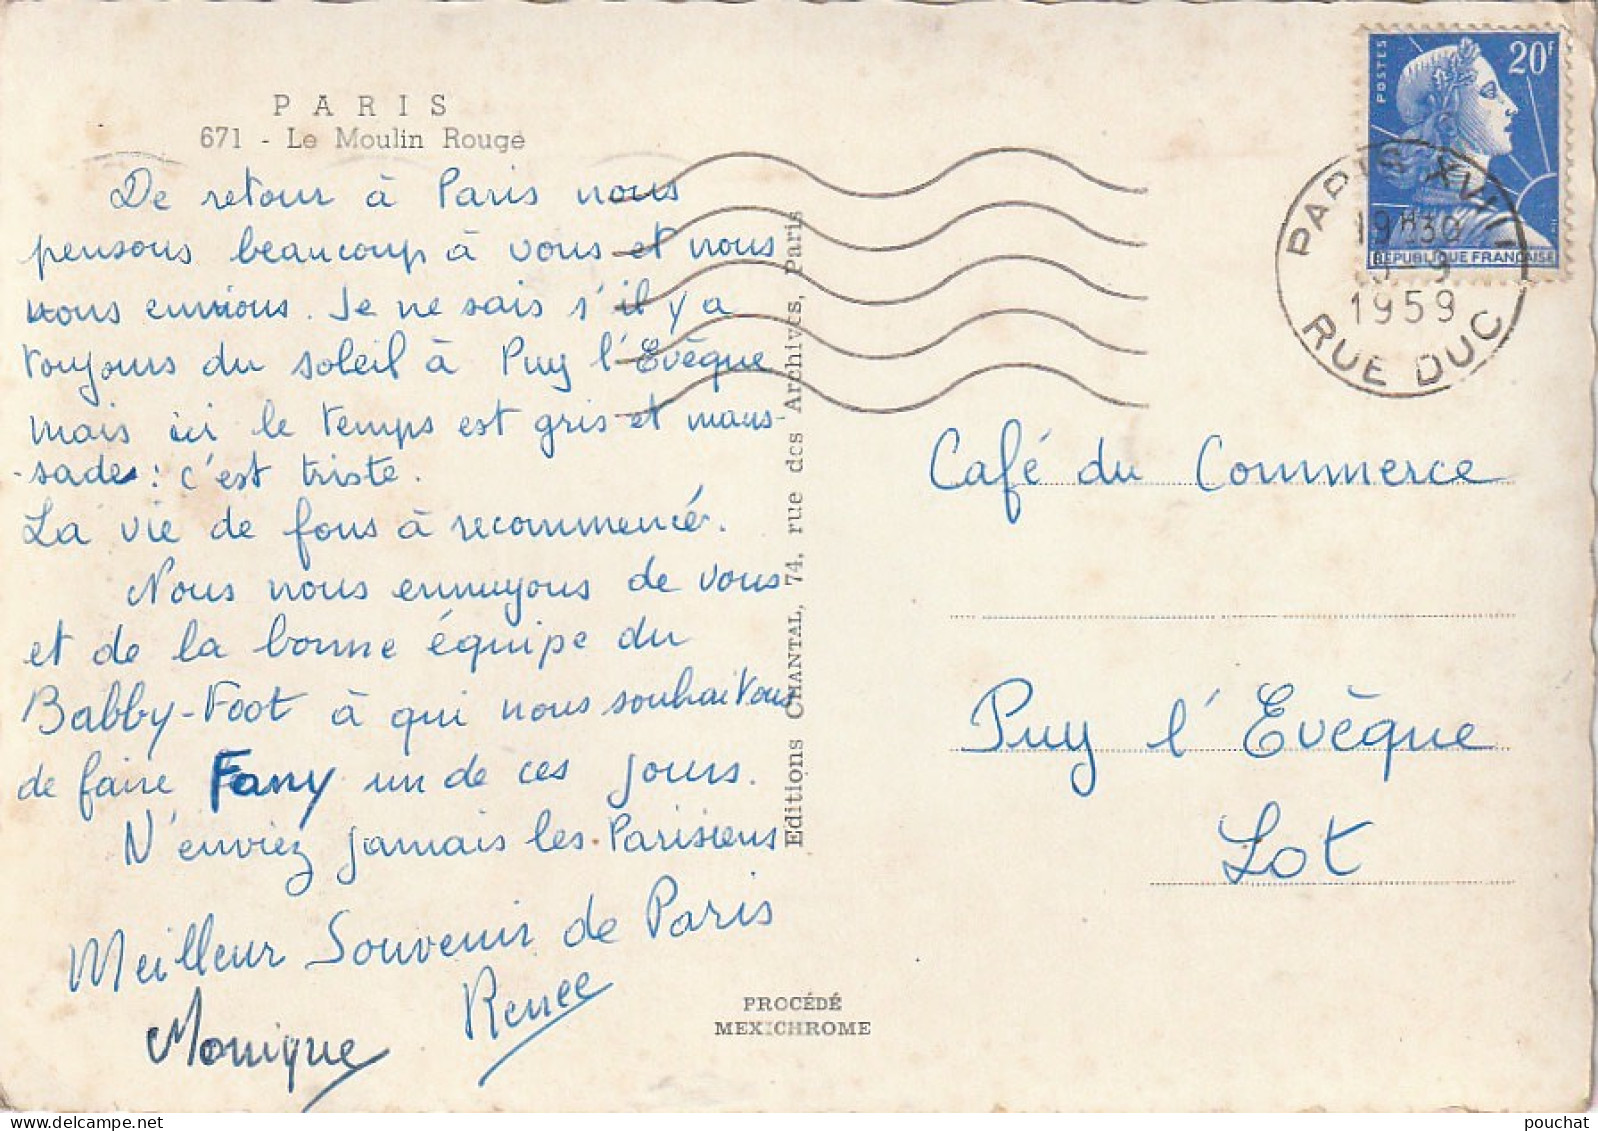 PARIS
671 - Le Moulin Rouge
De retour à Paris nous
pensons beaucoup à vous et nous
vous envions. Je ne sais s'il y a
toujours du soleil à Puy l'Evèque
mais ici le temps est gris et maus-
-sade : c'est triste.
La vie de fous à recommencé.
Nous nous ennuyons de vous
et de la bonne équipe du
Babby-Foot à qui nous souhaitons
de faire Fanny un de ces jours.
N'enviez jamais les Parisiens
Meilleur Souvenir de Paris
Monique
Renée
Editions CHANTAL, 74, rue des Archives, Paris
PROCÉDÉ
MEXICHROME
POSTES
20F
REPUBLIQUE FRANÇAISE
PARIS XVIII
19H30
-9
1959
RUE DUC
Café du Commerce
Puy l'Evèque
Lot
pouchat